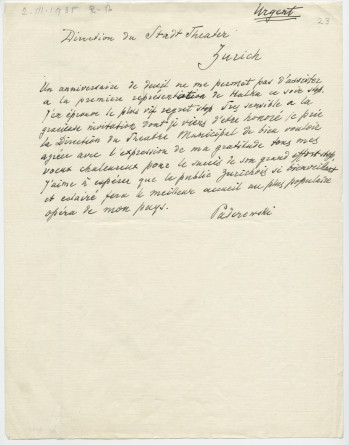 2-III-1935
Urgent
23
Direction du Stadt Theater
Zurich
Un anniversaire de deuil ne me permet pas d'assister
a la premiere representation de Halka ce soir stop.
J'en éprouve le plus vif regret stop Tres sensible a la
gracieuse invitation dont je viens d'etre honoré je prie
la Direction du Theatre Municipal de bien vouloir
agreer avec l'expression de ma gratitude tous mes
voeux chaleureux pour le succès de son grand effort stop
J'aime à espérer que le public Zurichois si bienveillant
et eclairé fera le meilleur accueil au plus populaire
opéra de mon pays.
Paderewski